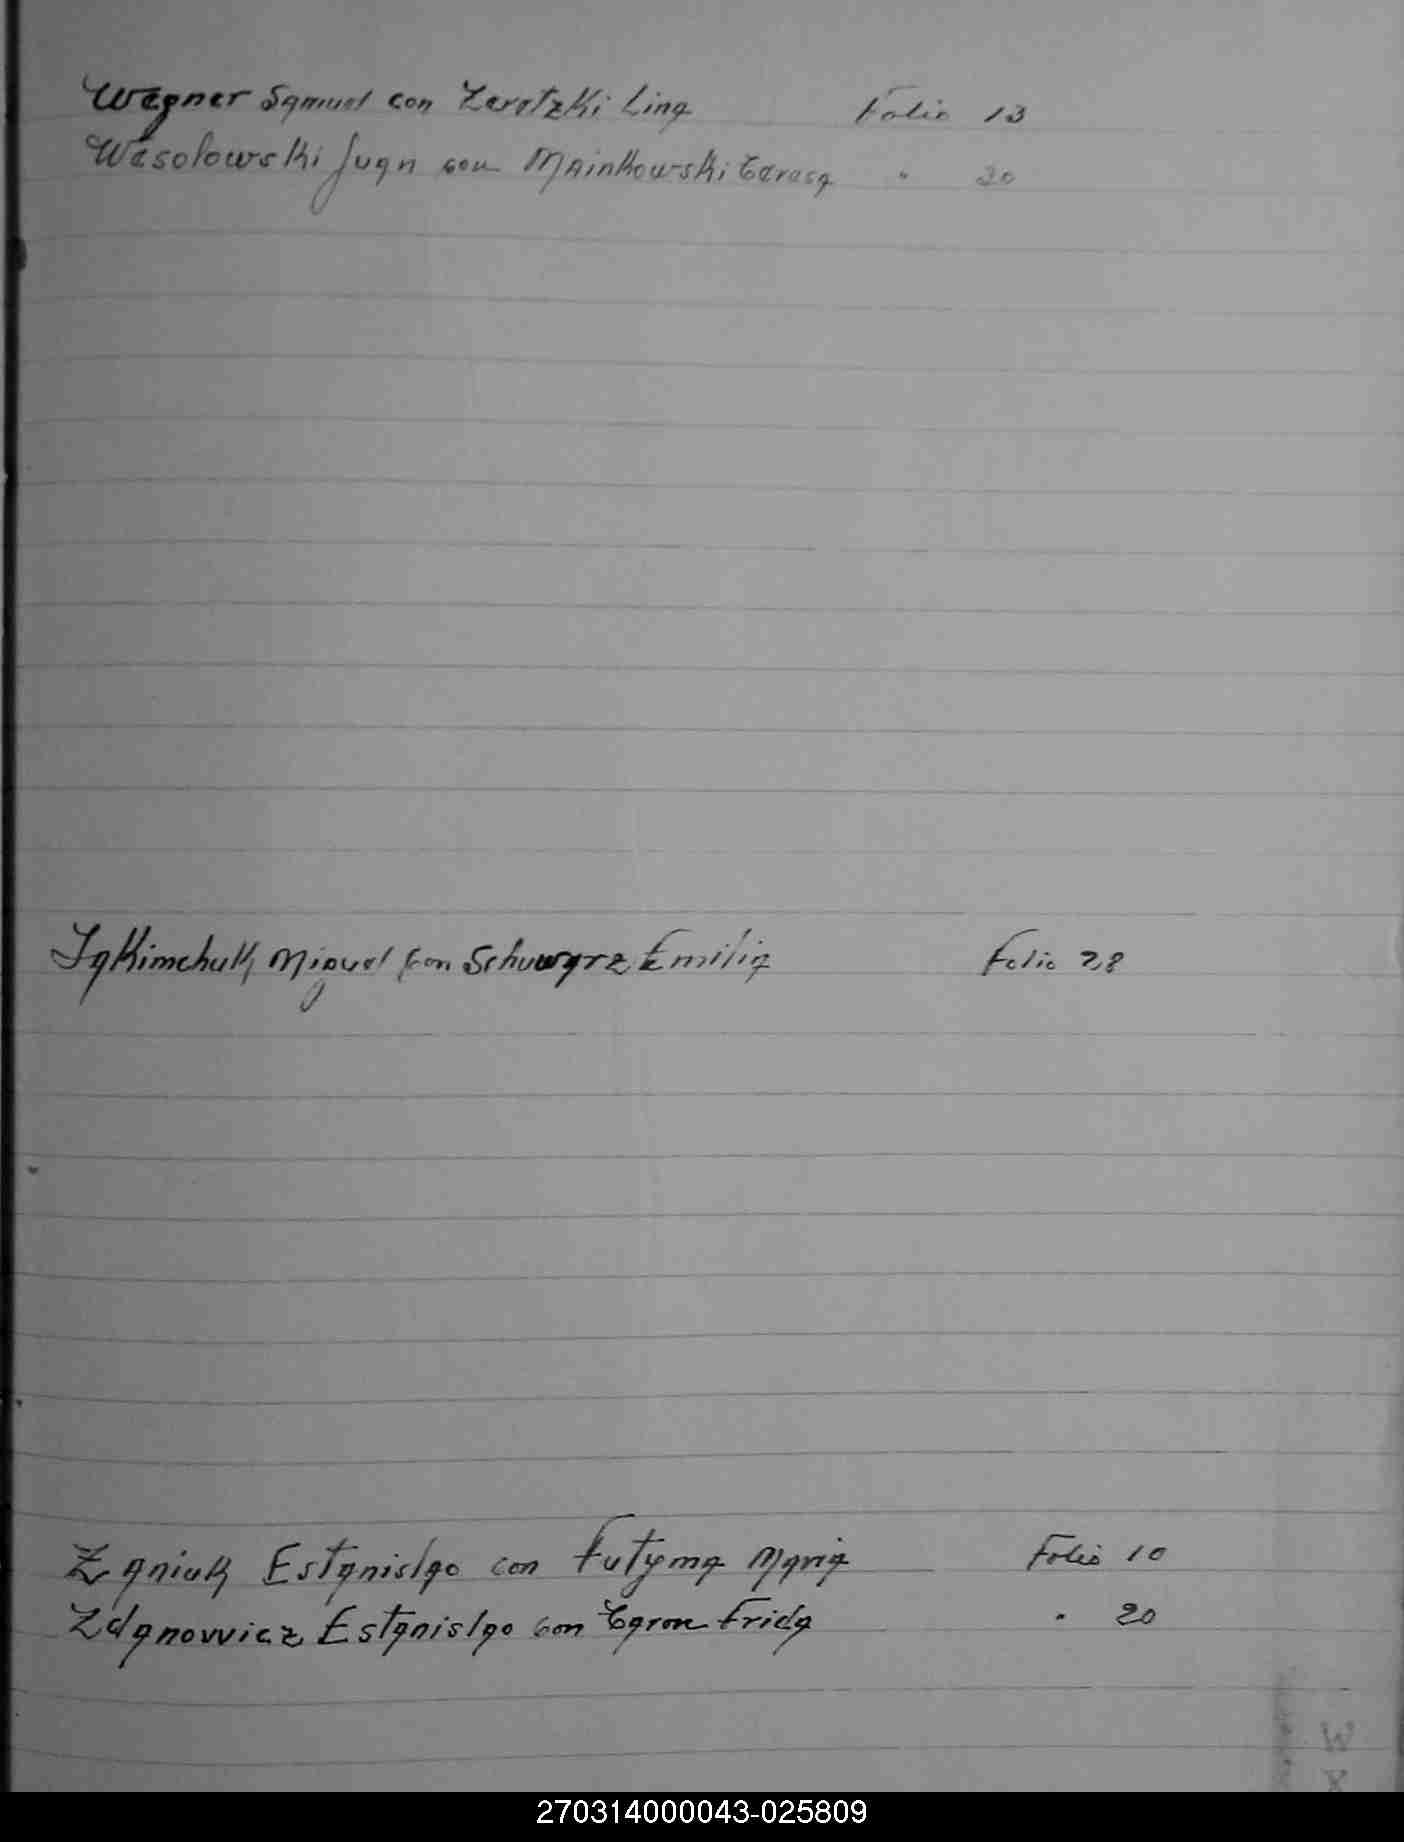 Wagner Samuel con Zaretzki Lina Folio 13
Wasolowski Juan con Mainkowski Teresa " 20
Iakimchuk Miguel con Schuwarz Emilia Folio 28
Zaniuk Estanislao con Futyma Maria Folio 10
Zdanowicz Estanislao con Caron Frida " 20
270314000043-025809